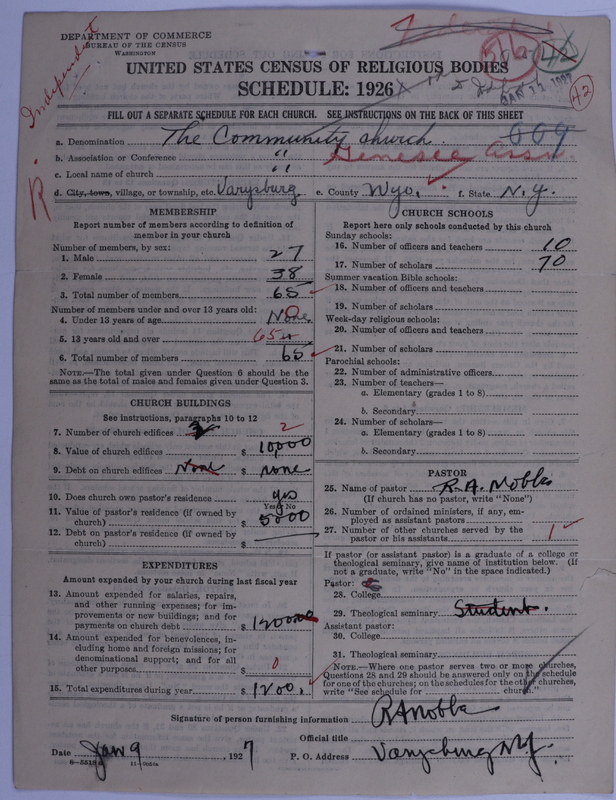 DEPARTMENT OF COMMERCE
BUREAU OF THE CENSUS
WASHINGTON
Independent
R.
562
42
JAN 11 1927
UNITED STATES CENSUS OF RELIGIOUS BODIES
SCHEDULE: 1926
FILL OUT A SEPARATE SCHEDULE FOR EACH CHURCH. SEE INSTRUCTIONS ON THE BACK OF THIS SHEET
a. Denomination The Community church 009
b. Association or Conference " Genesee Assn
c. Local name of church "
d. City, town, village, or township, etc. Varysburg e. County Wyo. f. State N.Y.
MEMBERSHIP
Report number of members according to definition of
member in your church
Number of members, by sex:
1. Male 27
2. Female 38
3. Total number of members 65
Number of members under and over 13 years old:
4. Under 13 years of age None 0
5. 13 years old and over 65
6. Total number of members 65
NOTE.—The total given under Question 6 should be the
same as the total of males and females given under Question 3.
CHURCH BUILDINGS
See instructions, paragraphs 10 to 12
7. Number of church edifices 2
8. Value of church edifices $ 10,000
9. Debt on church edifices None $ none
10. Does church own pastor's residence yes
Yes or No
11. Value of pastor's residence (if owned by
church) $ 5000
12. Debt on pastor's residence (if owned by
church) $
EXPENDITURES
Amount expended by your church during last fiscal year
13. Amount expended for salaries, repairs,
and other running expenses; for im-
provements or new buildings; and for
payments on church debt $ 1200
14. Amount expended for benevolences, in-
cluding home and foreign missions; for
denominational support; and for all
other purposes $ 0
15. Total expenditures during year $ 1200.
CHURCH SCHOOLS
Report here only schools conducted by this church
Sunday schools:
16. Number of officers and teachers 10
17. Number of scholars 70
Summer vacation Bible schools:
18. Number of officers and teachers
19. Number of scholars
Week-day religious schools:
20. Number of officers and teachers
21. Number of scholars
Parochial schools:
22. Number of administrative officers
23. Number of teachers—
a. Elementary (grades 1 to 8)
b. Secondary
24. Number of scholars—
a. Elementary (grades 1 to 8)
b. Secondary
PASTOR
25. Name of pastor R. A. Mobbs
(If church has no pastor, write "None")
26. Number of ordained ministers, if any, em-
ployed as assistant pastors
27. Number of other churches served by the
pastor or his assistants 1
If pastor (or assistant pastor) is a graduate of a college or
theological seminary, give name of institution below. (If
not a graduate, write "No" in the space indicated.)
Pastor:
28. College
29. Theological seminary Student.
Assistant pastor:
30. College
31. Theological seminary
NOTE.—Where one pastor serves two or more churches,
Questions 28 and 29 should be answered only on the schedule
for one of the churches; on the schedules for the other churches,
write "See schedule for church."
Signature of person furnishing information R A Mobbs
Official title
Date Jan 9, 1927 P. O. Address Varysburg N.Y.